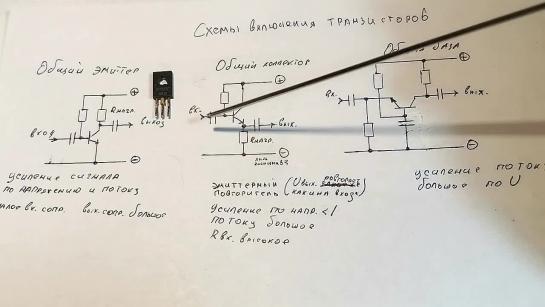 Схемы включения транзисторов
Общий эмитер
вход
Rнагр.
выход
усиление сигнала
по напряжению и потоку
вх. сопр. вых. сопр. большое
Общий коллектор
вх.
вых.
Rнагр.
эмиттерный
повторитель
(Uвых.
как и на входе)
усиление по напр. <1
по току большое
Rвх. высокое
база
вх.
вых.
усиление по току
большое по U